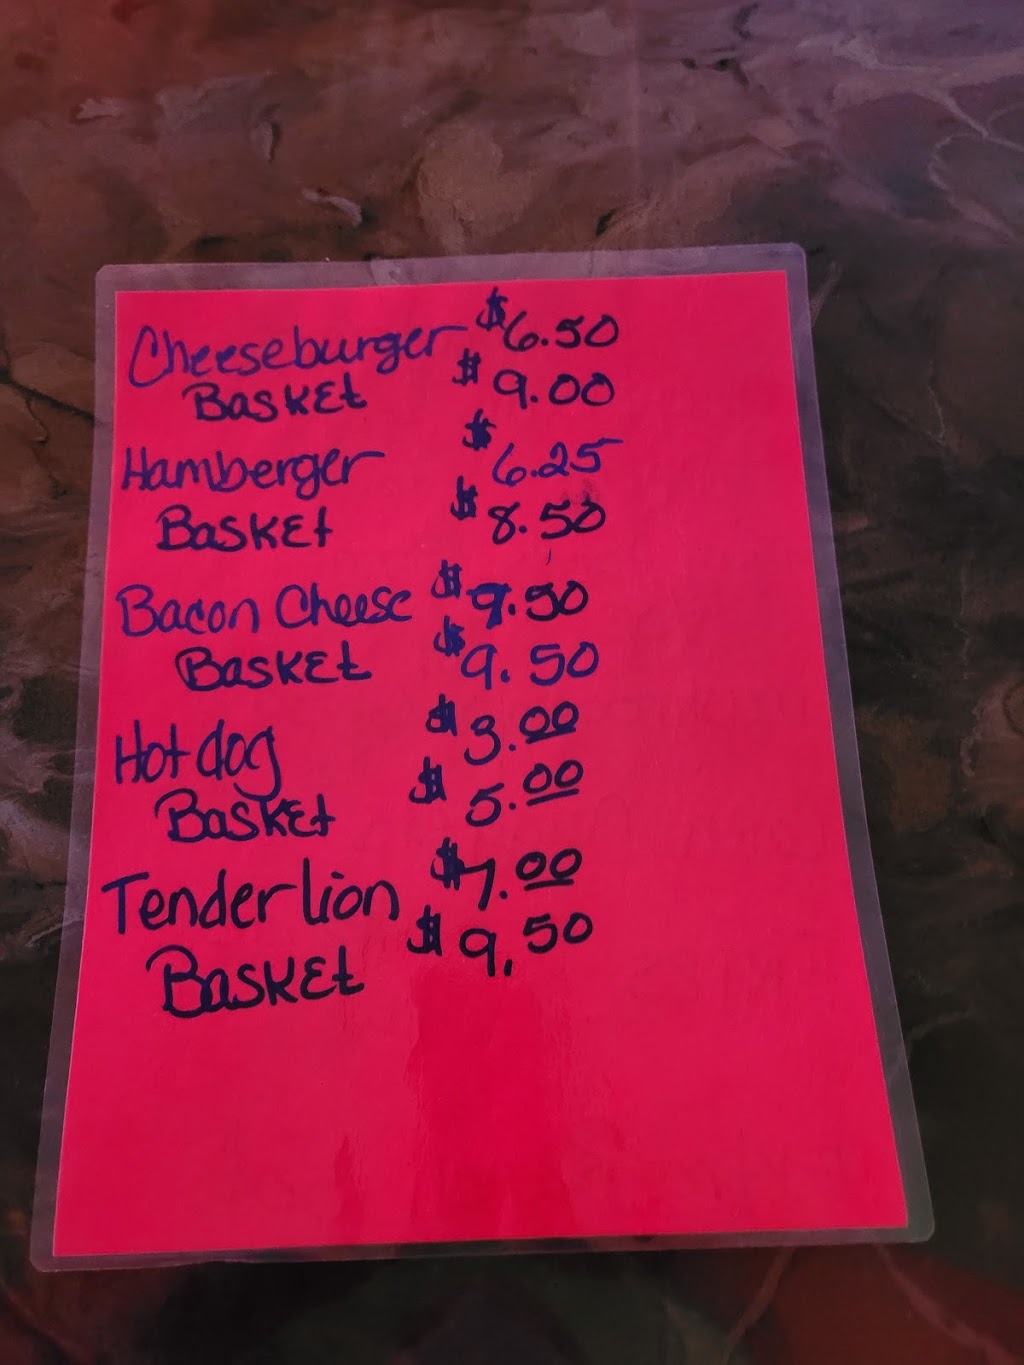 Cheeseburger $6.50
Basket $9.00
Hamberger $6.25
Basket $8.50
Bacon Cheese $9.50
Basket $9.50
Hotdog $3.00
Basket $5.00
Tenderlion $7.00
Basket $9.50